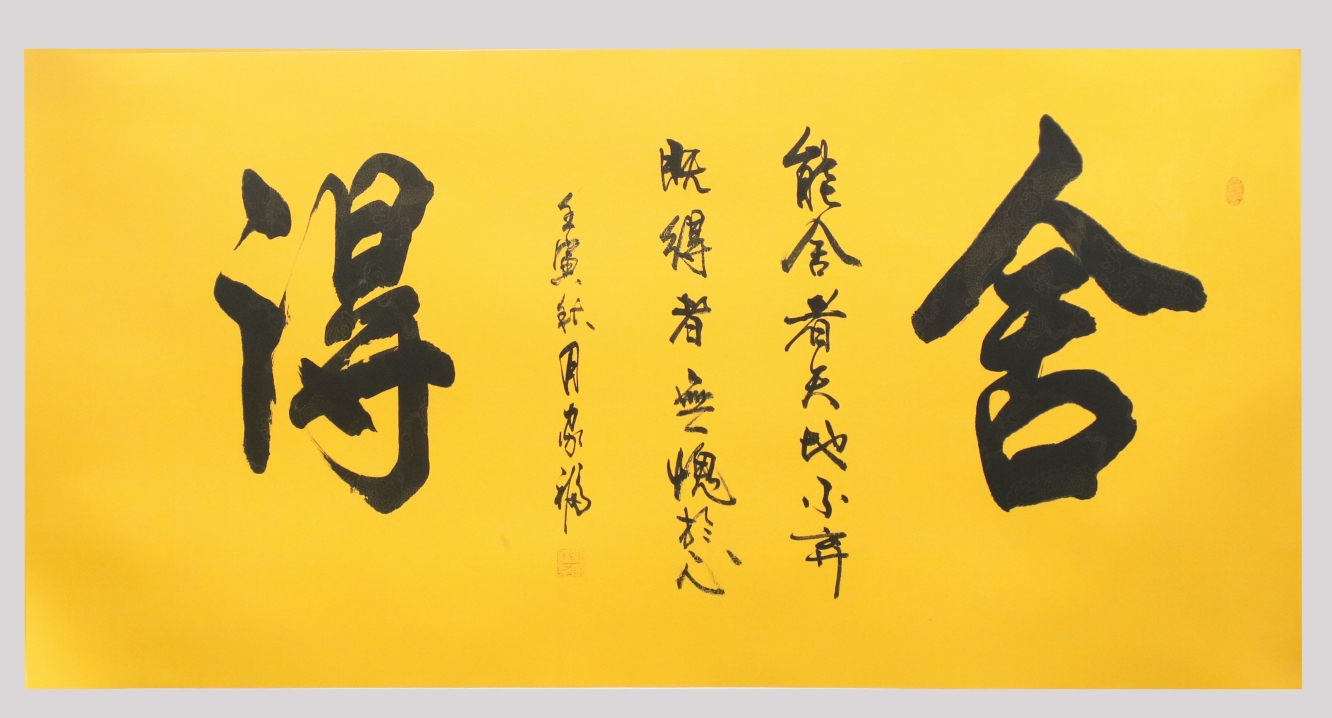 舍
能舍者天地不弃
既得者無愧於心
壬寅秋月家福
得